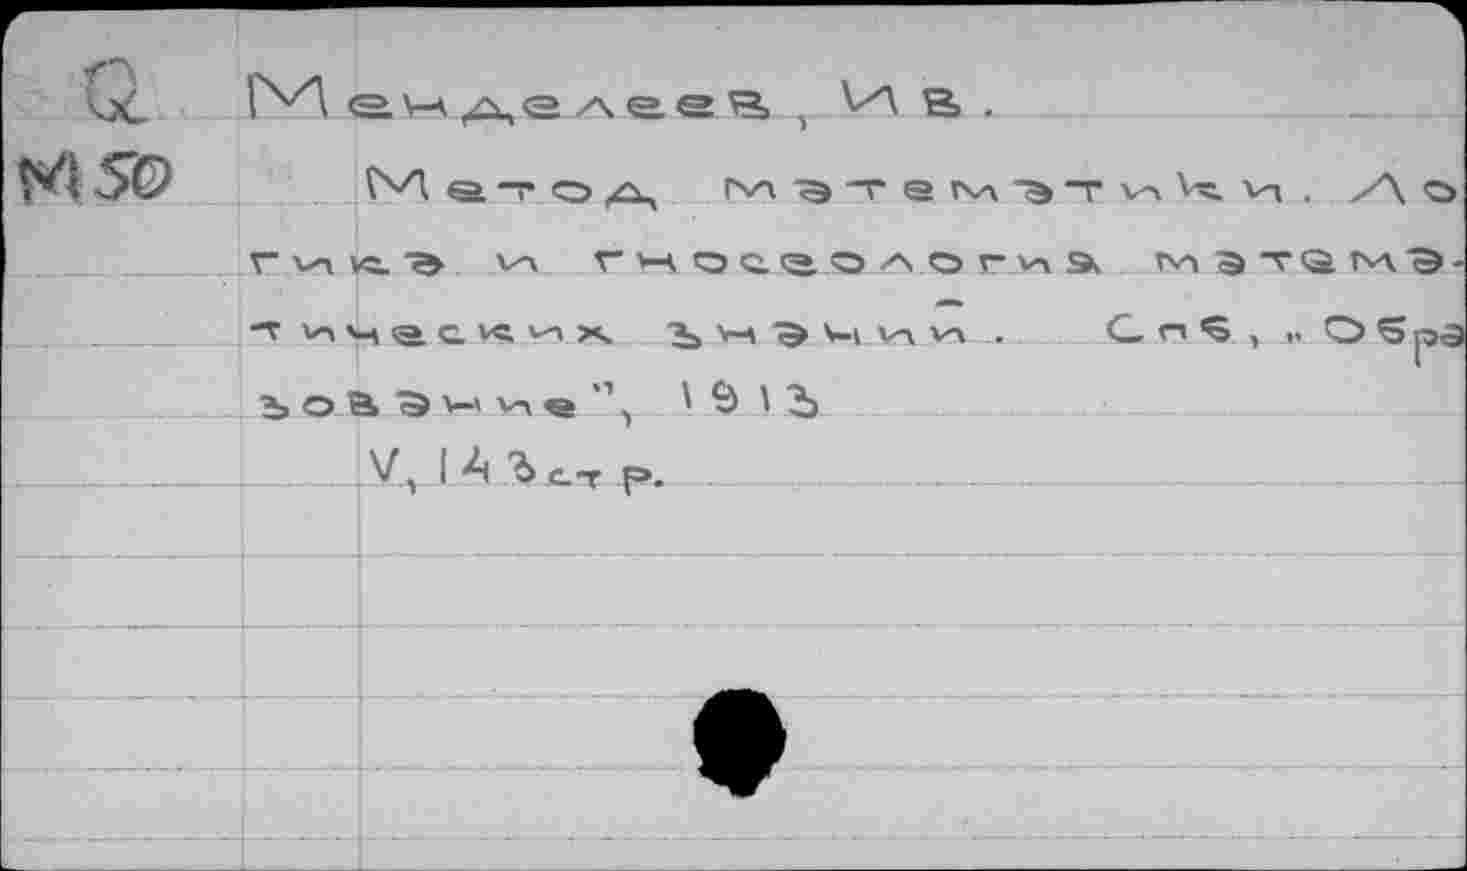 Q Менделеев, Ив.
М50 Метод математики. Ло
гика и гносеология матема-
тических знании. Спб, „Обра
зование", 1913
V, 143 стр.